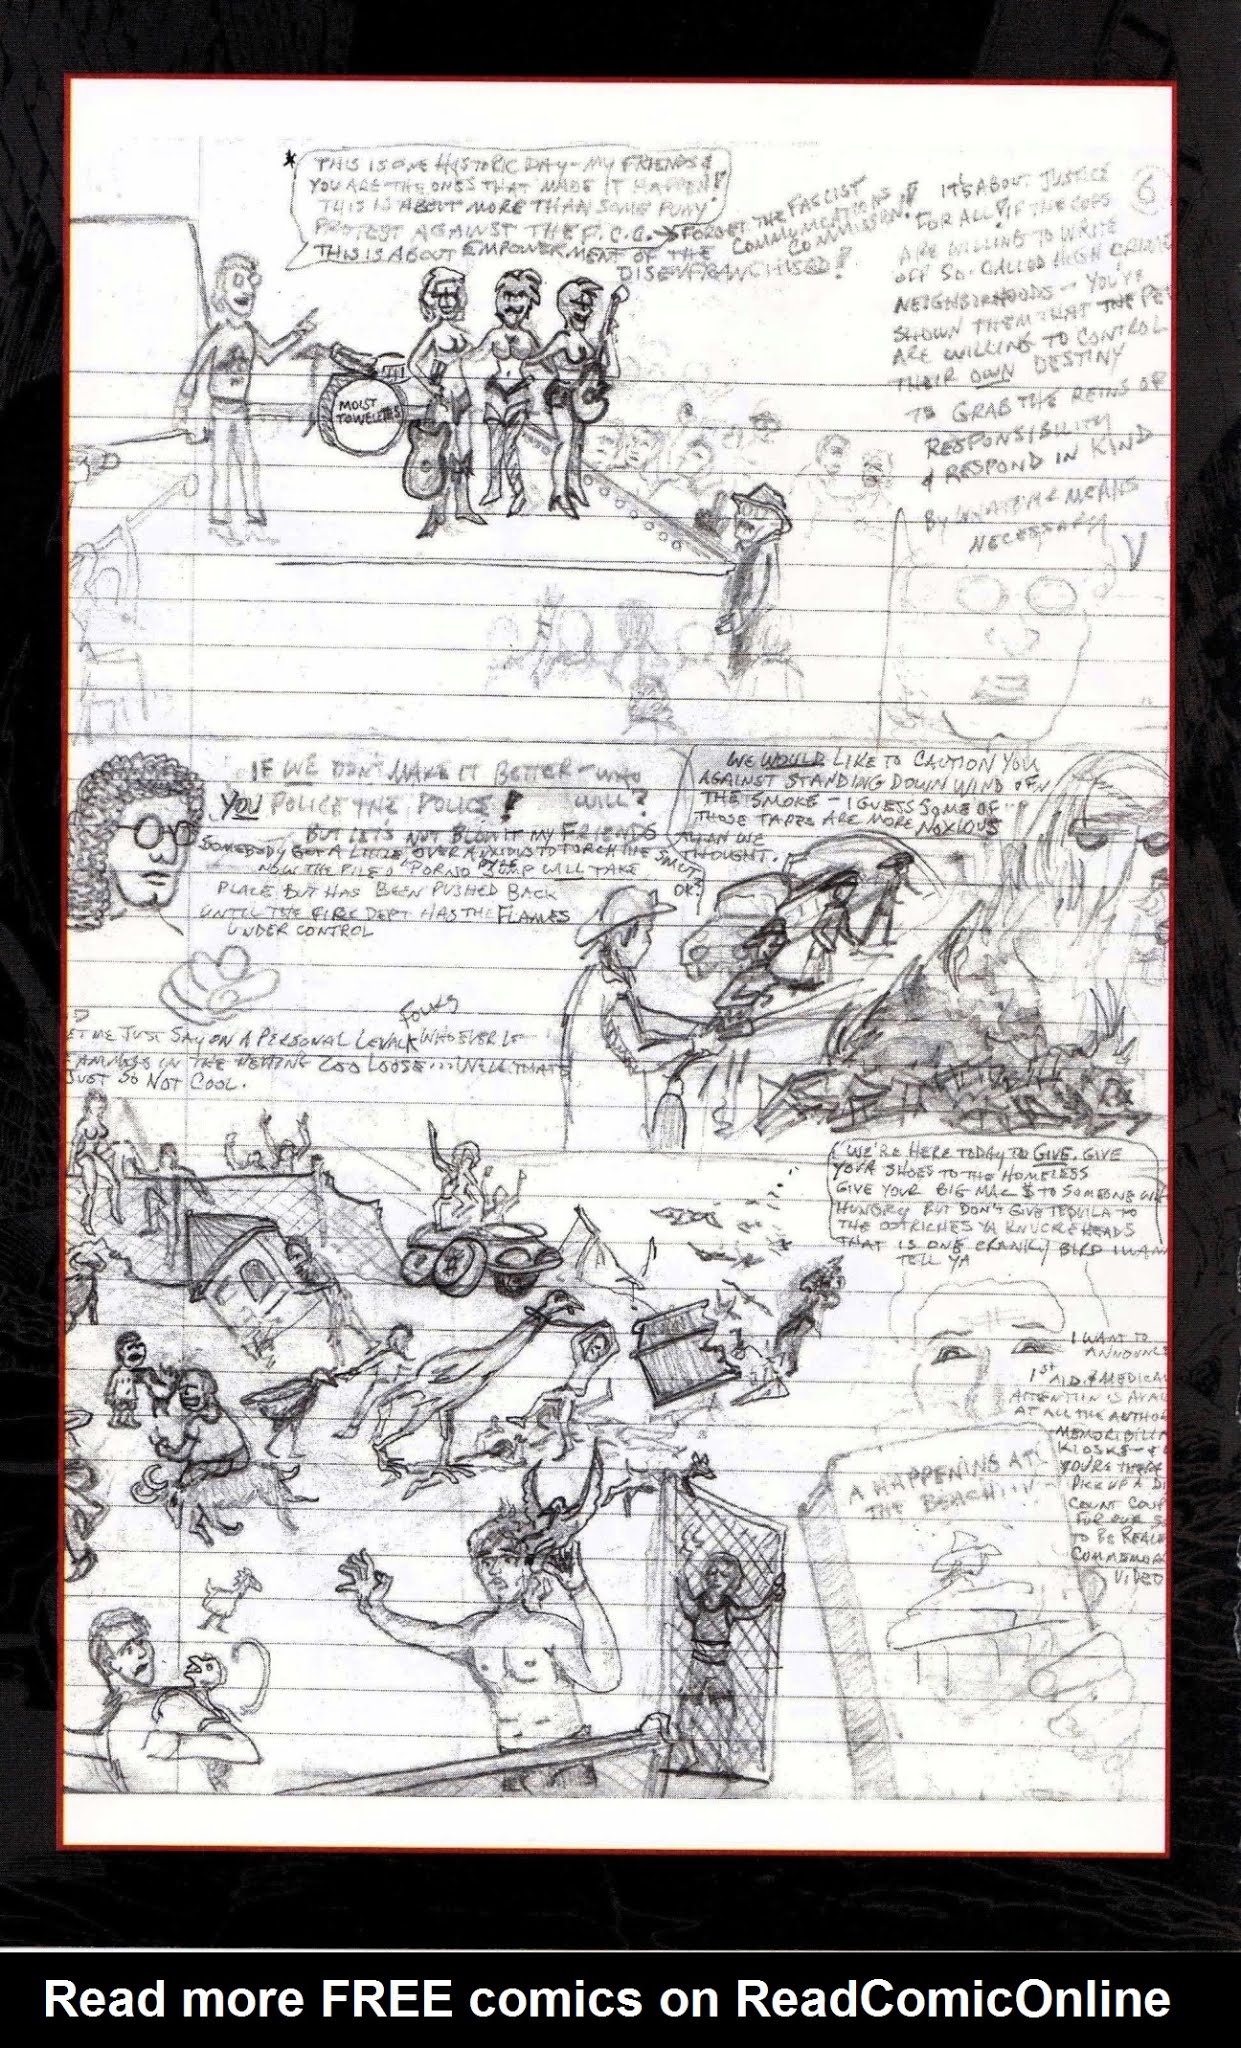 * THIS IS ONE HISTORIC DAY - MY FRIENDS &
YOU ARE THE ONES THAT MADE IT HAPPEN!
THIS IS ABOUT MORE THAN SOME PUNY
PROTEST AGAINST THE F.C.C. → FORGET THE FASCIST
COMMUNICATIONS
COMMISSION!!
THIS IS ABOUT EMPOWERMENT OF THE
DISENFRANCHISED!
6
IT'S ABOUT JUSTICE
FOR ALL! IF THE COPS
ARE WILLING TO WRITE
OFF SO-CALLED HIGH CRIME
NEIGHBORHOODS - YOU'VE
SHOWN THEM THAT THE
ARE WILLING TO CONTROL
THEIR OWN DESTINY
TO GRAB THE REINS OF
RESPONSIBILITY
& RESPOND IN KIND
BY WHATEVER MEANS
NECESSARY
MOIST
TOWELETTES
IF WE DON'T MAKE IT BETTER - WHO
WILL?
YOU POLICE THE POLICE!
BUT LET'S NOT BLOW IT MY FRIENDS
SOMEBODY GOT A LITTLE OVER ANXIOUS TO TORCH THE SMUT
OK?
NOW THE PILE O' PORNO JUMP WILL TAKE
PLACE BUT HAS BEEN PUSHED BACK
UNTIL THE FIRE DEPT HAS THE FLAMES
UNDER CONTROL
WE WOULD LIKE TO CAUTION YOU
AGAINST STANDING DOWN WIND OF
THE SMOKE - I GUESS SOME OF
THOSE TAPES ARE MORE NOXIOUS
THAN WE
THOUGHT.
FOLKS
ET ME JUST SAY ON A PERSONAL LEVEL WHOEVER LET
ANIMALS IN THE PETTING ZOO LOOSE... WELL THAT'S
JUST SO NOT COOL.
WE'RE HERE TODAY TO GIVE. GIVE
YOUR SHOES TO THE HOMELESS
GIVE YOUR BIG MAC $ TO SOMEONE
HUNGRY BUT DON'T GIVE TEQUILA TO
THE OSTRICHES YA KNUCKLEHEADS
THAT IS ONE CRANKY BIRD I WAN
TELL YA
I WANT TO
ANNOUNCE
1ST AID & MEDICAL
ATTENTION IS AVAI
AT ALL THE AUTHOR
MEMORIBILIA
KIOSKS - &
YOU'RE THERE
PICK UP A DI
COUNT COUP
FOR OUR S
TO BE RELEA
COMMEMOR
VIDEO
A HAPPENING AT
THE BEACH!!!
Read more FREE comics on ReadComicOnline